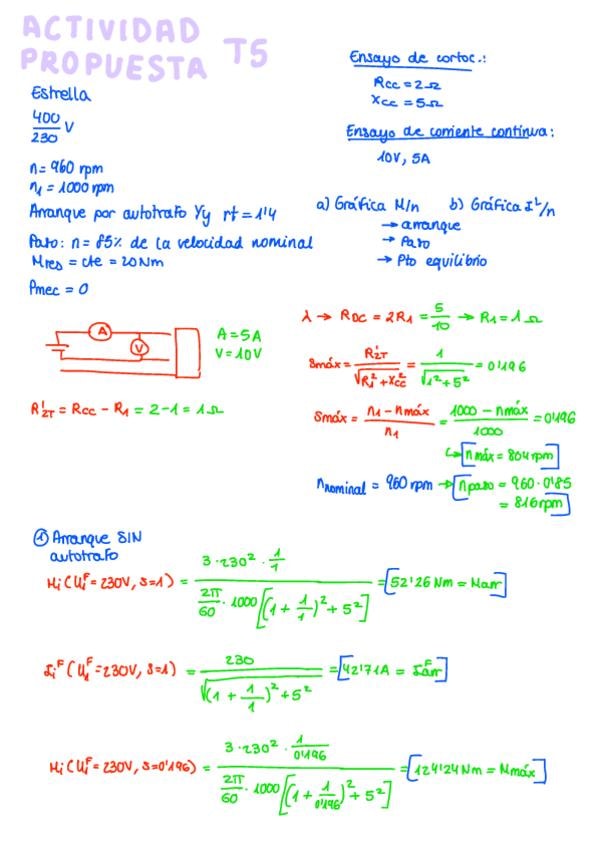 ACTIVIDAD
PROPUESTA T5
Estrella
400/230 V
n = 960 rpm
n1 = 1000 rpm
Arranque por autotrafo Yy rt = 1'4
Paso: n = 85% de la velocidad nominal
Mres = cte = 20Nm
Pmec = 0
Ensayo de cortoc.:
Rcc = 2Ω
Xcc = 5Ω
Ensayo de corriente continua:
10V, 5A
a) Gráfica M/n b) Gráfica I^L/n
→ arranque
→ Paso
→ Pto equilibrio
A
V
A = 5A
V = 10V
R'2T = Rcc - R1 = 2 - 1 = 1 Ω
λ → RDC = 2R1 = 5/10 → R1 = 1 Ω
Smáx = R'2T / √(R1² + Xcc²) = 1 / √(1² + 5²) = 0'196
Smáx = (n1 - nmáx) / n1 = (1000 - nmáx) / 1000 = 0'196
↳ [nmáx = 804 rpm]
nnominal = 960 rpm → [npaso = 960·0'85
= 816 rpm]
① Arranque SIN
autotrafo
Mi (U1^F = 230V, S=1) = (3·230²·1/1) / (2π/60·1000[(1 + 1/1)² + 5²]) = [52'26 Nm = Marr]
Ii^F (U1^F = 230V, S=1) = 230 / √((1 + 1/1)² + 5²) = [42'71A = Iarr^F]
Mi (U1^F = 230V, S=0'196) = (3·230²·1/0'196) / (2π/60·1000[(1 + 1/0'196)² + 5²]) = [124'24 Nm = Mmáx]